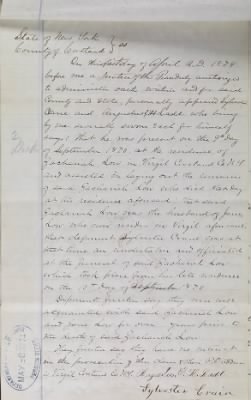 State of New York } ss
County of Cortland }
On this day of April A.D. 1884
before me a Justice of the Peace duly authorized
to administer oaths within and for said
County and State, personally appeared Sylvester
Crain and Augustus H. Ladd who being
by me severally sworn each for himself
says that he was present on the 9th day
of September 1870 at the residence of
Zachariah Low in Virgil Cortland Co N.Y.
and assisted in laying out the remains
of said Zachariah Low who died
at his residence aforesaid that said
Zachariah Low was the husband of Jane
Low who now resides in Virgil aforesaid,
that deponent Sylvester Crain was at
that time an undertaker and officiated
at the funeral of said Zachariah Low
which took place from his late residence
on the day of September 1870
Deponents further say they were well
acquainted with said Zachariah Low
and Jane Low for over years prior to
the death of said Zachariah Low
They further say they have no interest
in the prosecution of this claim
in Virgil Cortland Co N.Y.
Sylvester Crain